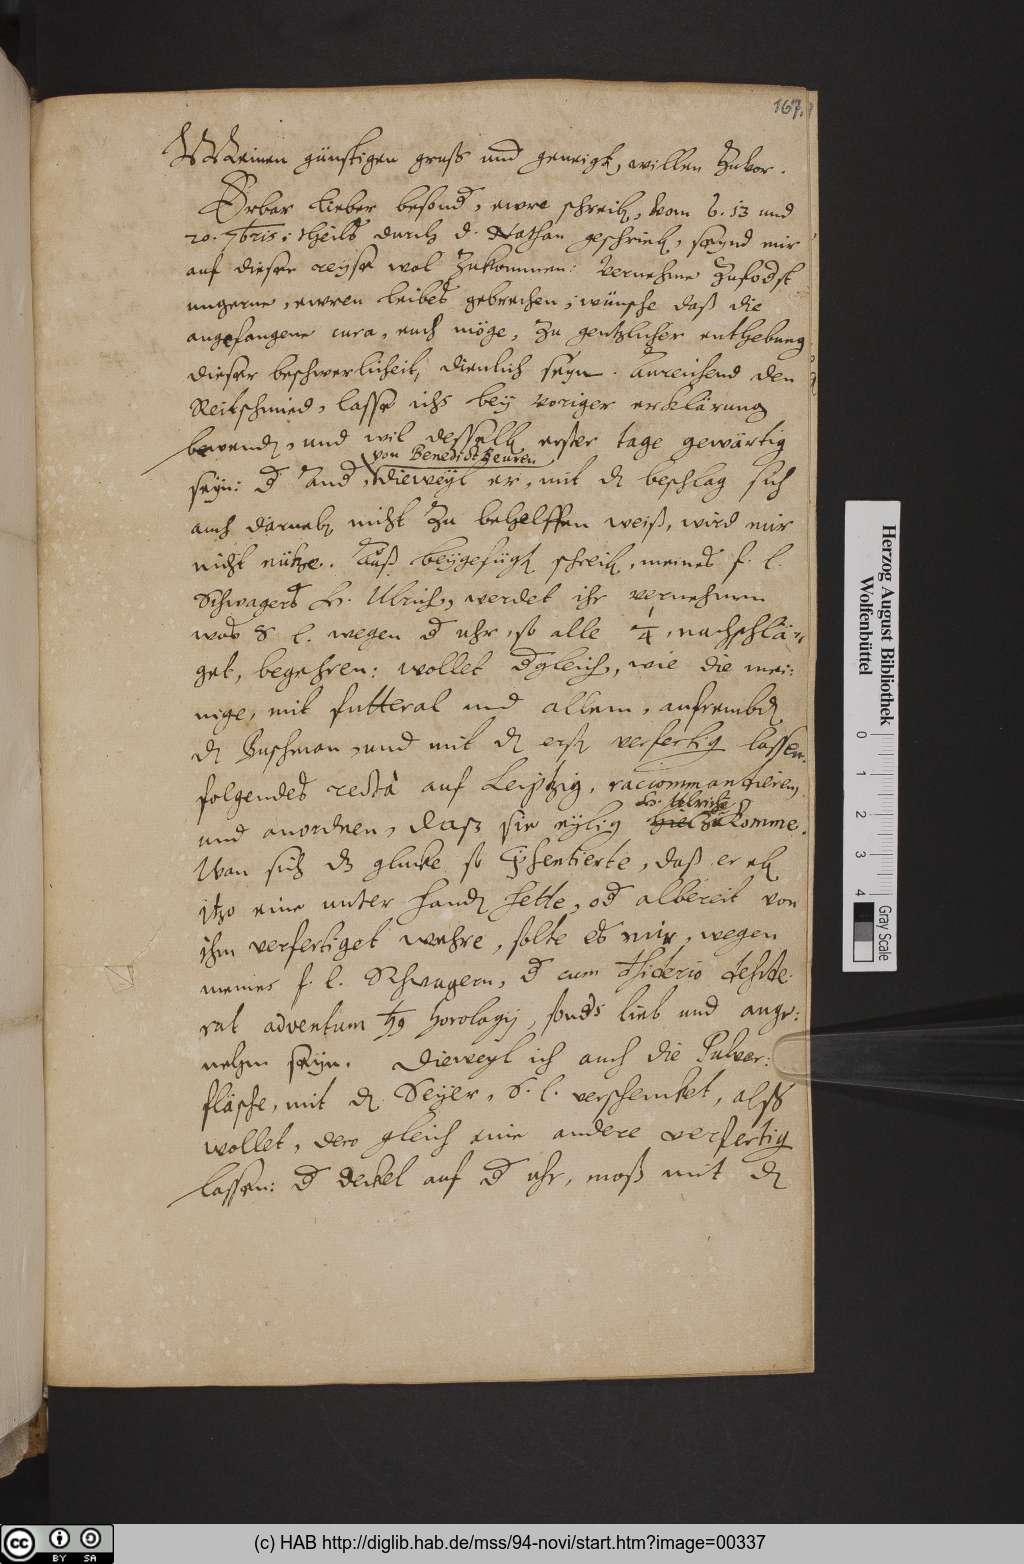 167.
Meinen günstigen gruß und geneigt, willen zuvor.
Erbar lieber besond, ewre schreib, vom 6. 13 und
20. 7bris: theils durch d. Nathan geschrieb, seynd mir
auf dieser reyse wol zukommen: Vernehme zufodst
ungerne, ewren leibes gebrechen, wünsche daß die
angefangene cura, euch möge, zu gentzlicher enthebung
dieser beschwerlicheit, dienlich seyn. Anreichend den
Reitschmied, lasse ichs bey voriger erclärung
bewend, und wil desselb erster tage gewärtig
von Benedict Beuren
seyn: d And, dieweyl er, mit d beschlag sich
auch darneb nicht zu behelffen weiß, wird mir
nicht nütze. Auß beygefügt schreib, meines f. l.
Schwagers H. Ulrich, werdet ihr vernehmen
was S l. wegen d uhr, so alle 1/4, nachschlä-
get, begehren: wollet dgleich, wie die mei:
nige, mit futteral und allem, anfrembd
d Buschman, und mit d erst verfertig lassen.
folgendes recta auf Leiptzig,
H. Ulrich
und anordnen, daß sie eylig zukomme.
Wan sich dz glucke so psentierte, daß er eb
itzo eine unter hand hette, od albereit von
ihm verfertiget wehre, solte es mir, wegen
meines f. l. Schwagern, d cum desiderio
rat adventum horologij, sonds lieb und ange:
nehm seyn. Dieweyl ich auch die Pulver:
flasche, mit d Seyer, S. l. verschencket, alß
wollet, dero gleich eine andere verfertig
lassen: d deckel auf d uhr, moß mit d
Herzog August Bibliothek
Wolfenbüttel
0 1 2 3 4
Gray Scale
cc BY SA
(c) HAB http://diglib.hab.de/mss/94-novi/start.htm?image=00337